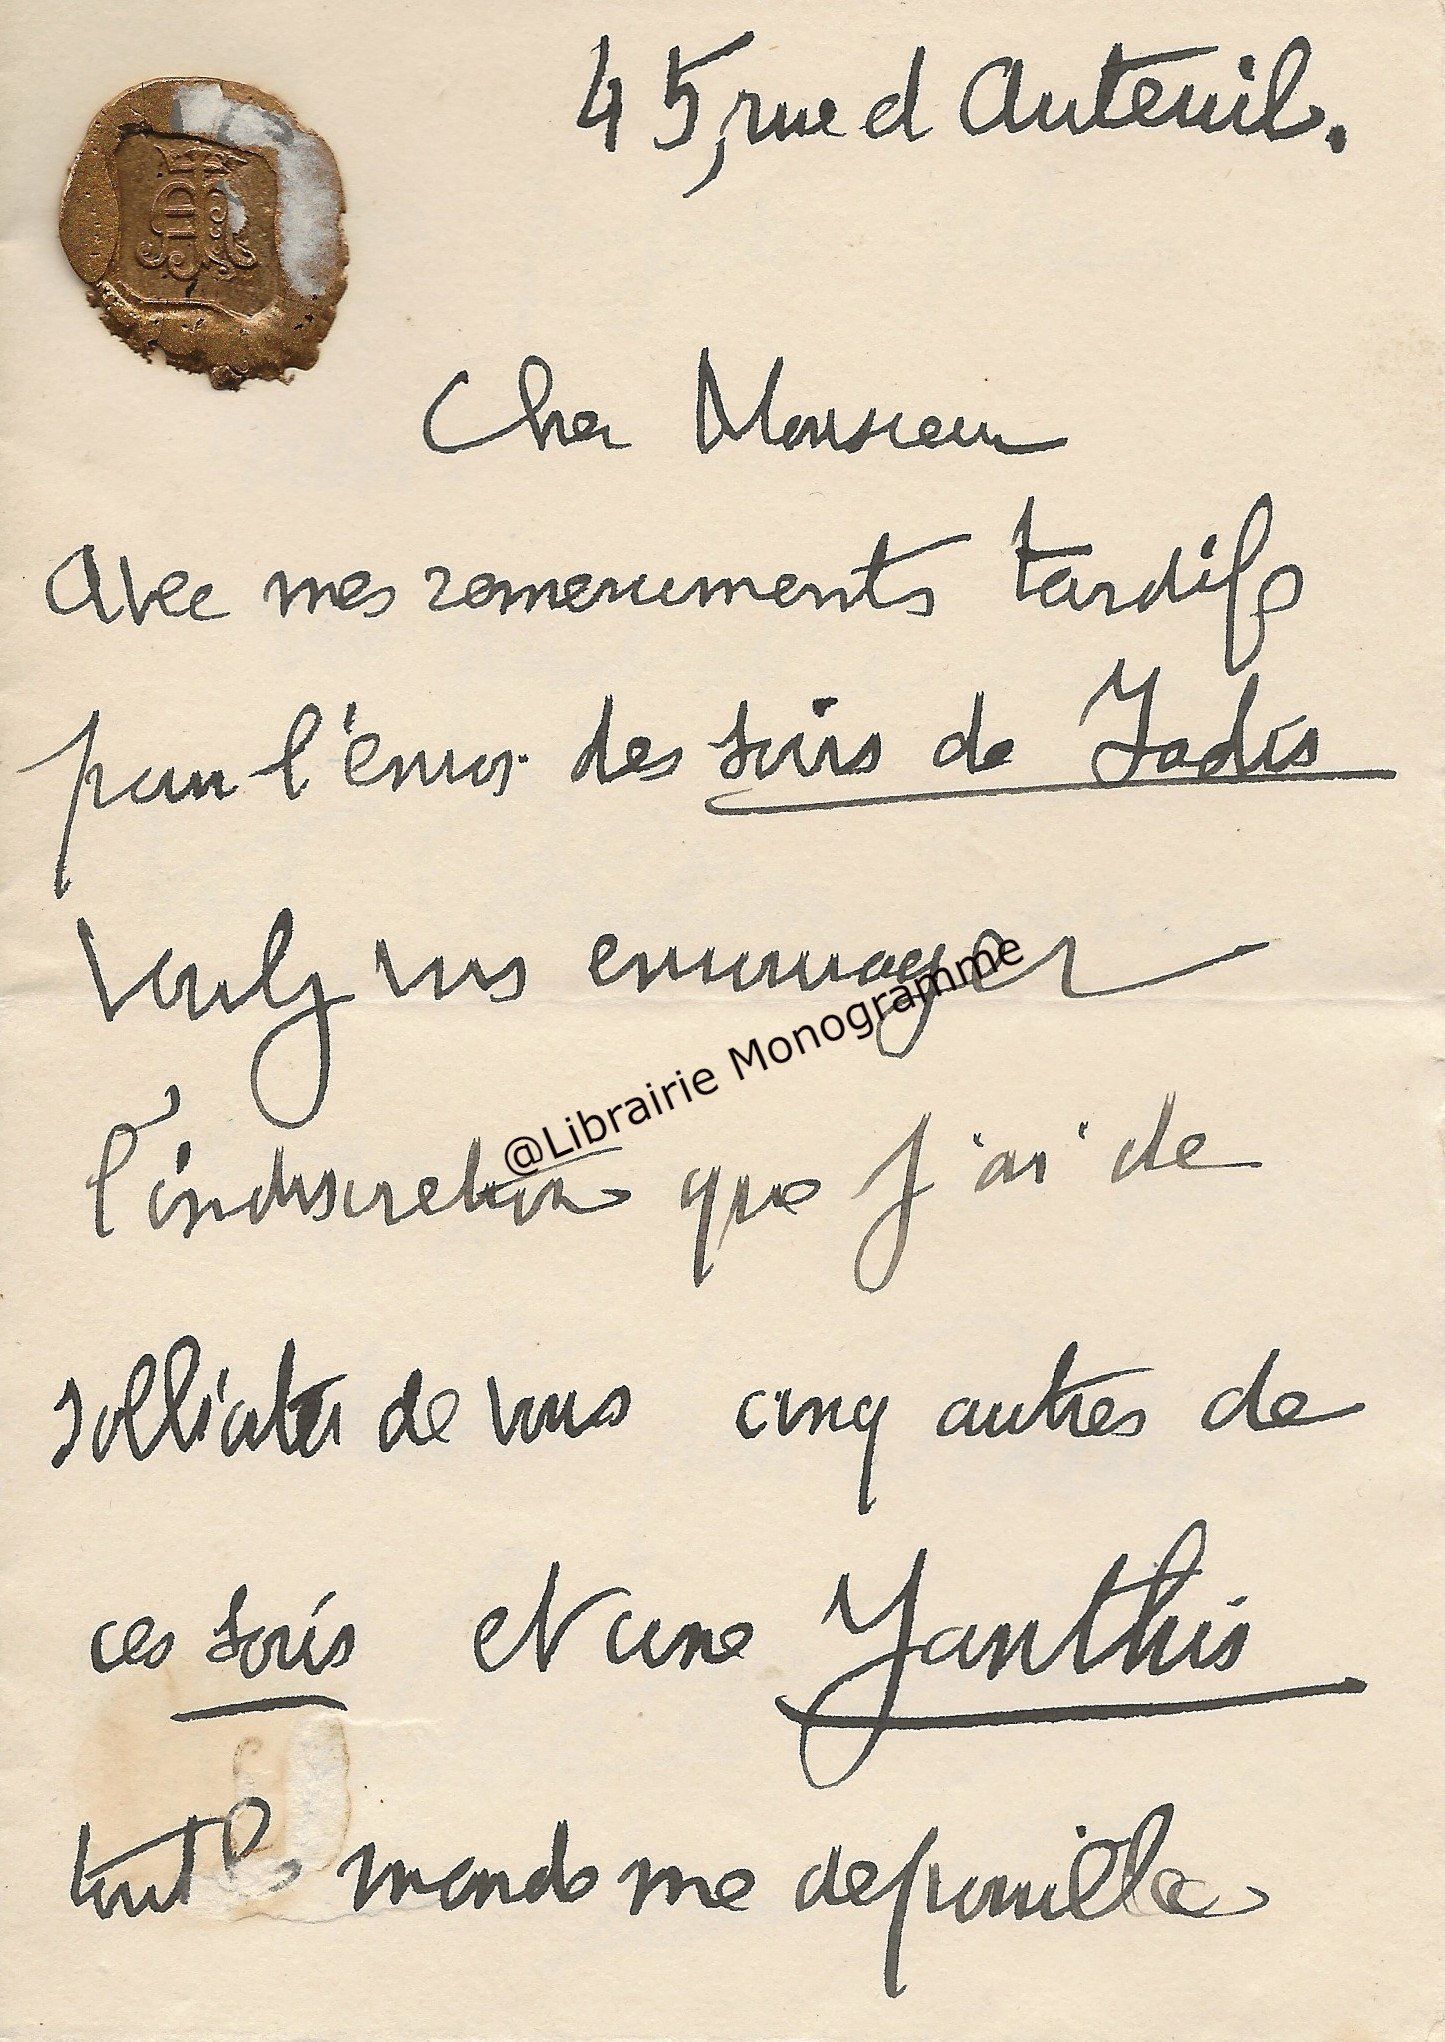 45, rue d Auteuil.
Cher Monsieur
Avec mes remerciements tardifs
pour l'envoi des soirs de Jadis
Voulez vous envisager
l'indiscretion que j'ai de
solliciter de vous cinq autres de
ces soirs et une Yanthis
tout le monde me depouille
@Librairie Monogramme